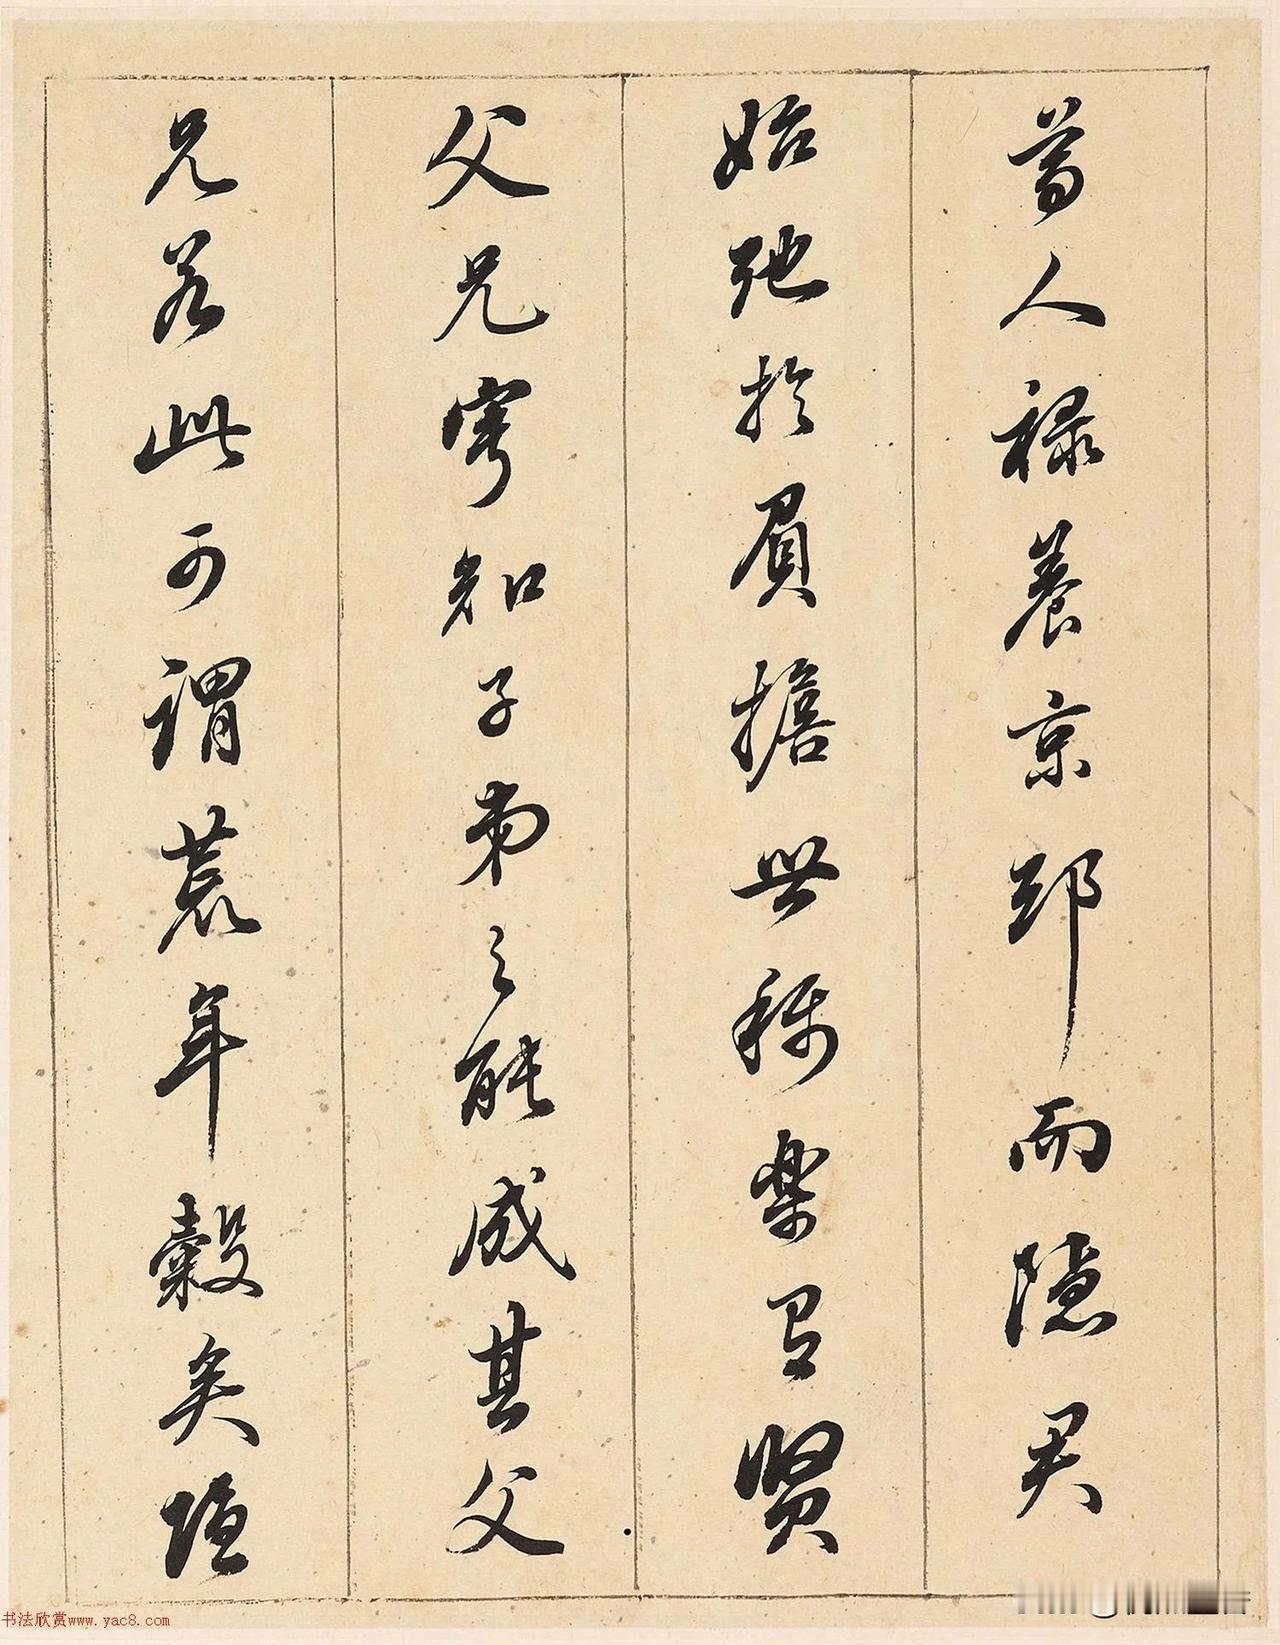 萬人祿養京邸而隱君
始弛於負擔世稱樂有賢
父兄寧知子弟之能成其父
兄若此可謂荒年穀矣隱
书法欣赏www.yac8.com